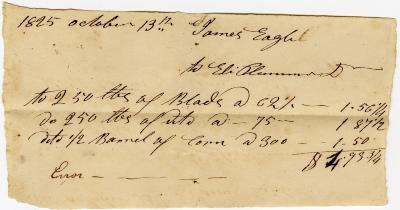 1825 October 13th James Eagle
to Eli
to 250 lbs of Blads a 62½ — 1.56¼
do 250 lbs of dto a — 75 — 1 87½
dto ½ Barrel of Corn a 300 — 1.50
$ 4.93¾
Error